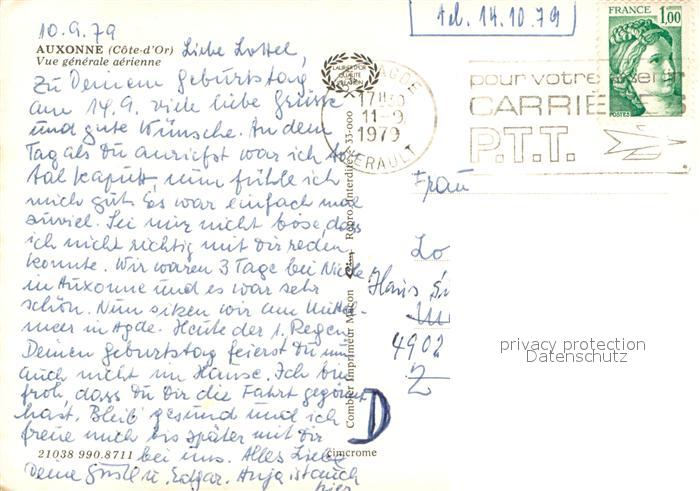 10.9.79
tel. 14.10.79
FRANCE
1,00
POSTES
AUXONNE (Côte-d'Or)
Vue générale aérienne
Liebe Lottel,
Zu Deinem Geburtstag
am 14.9. viele liebe Grüsse
und gute Wünsche. An dem
Tag als Du anriefst war ich to-
tal kaputt, nun fühle ich
mich gut. Es war einfach mal
zuviel. Sei mir nicht böse, dass
ich nicht richtig mit Dir reden
konnte. Wir waren 3 Tage bei Nicole
in Auxonne und es war sehr
schön. Nun sitzen wir am Mittel-
meer in Agde. Heute der 1. Regen.
Deinen Geburtstag feierst Du nun
auch nicht im Hause. Ich bin
froh, dass Du Dir die Fahrt gegönnt
hast. Bleib gesund und ich
freue mich bis später mit Dir
bei uns. Alles Liebe
Deine Gustl u. Edgar. Anja ist auch
hier
21038 990.8711
cimcrome
Combier Imprimeur Mâcon
Repro. Interdite 33-000
AGDE
17H30
11-9
1979
HERAULT
pour votre avenir
CARRIÈRES
P.T.T.
Frau
Lo
Hans
4902
D
privacy protection
Datenschutz